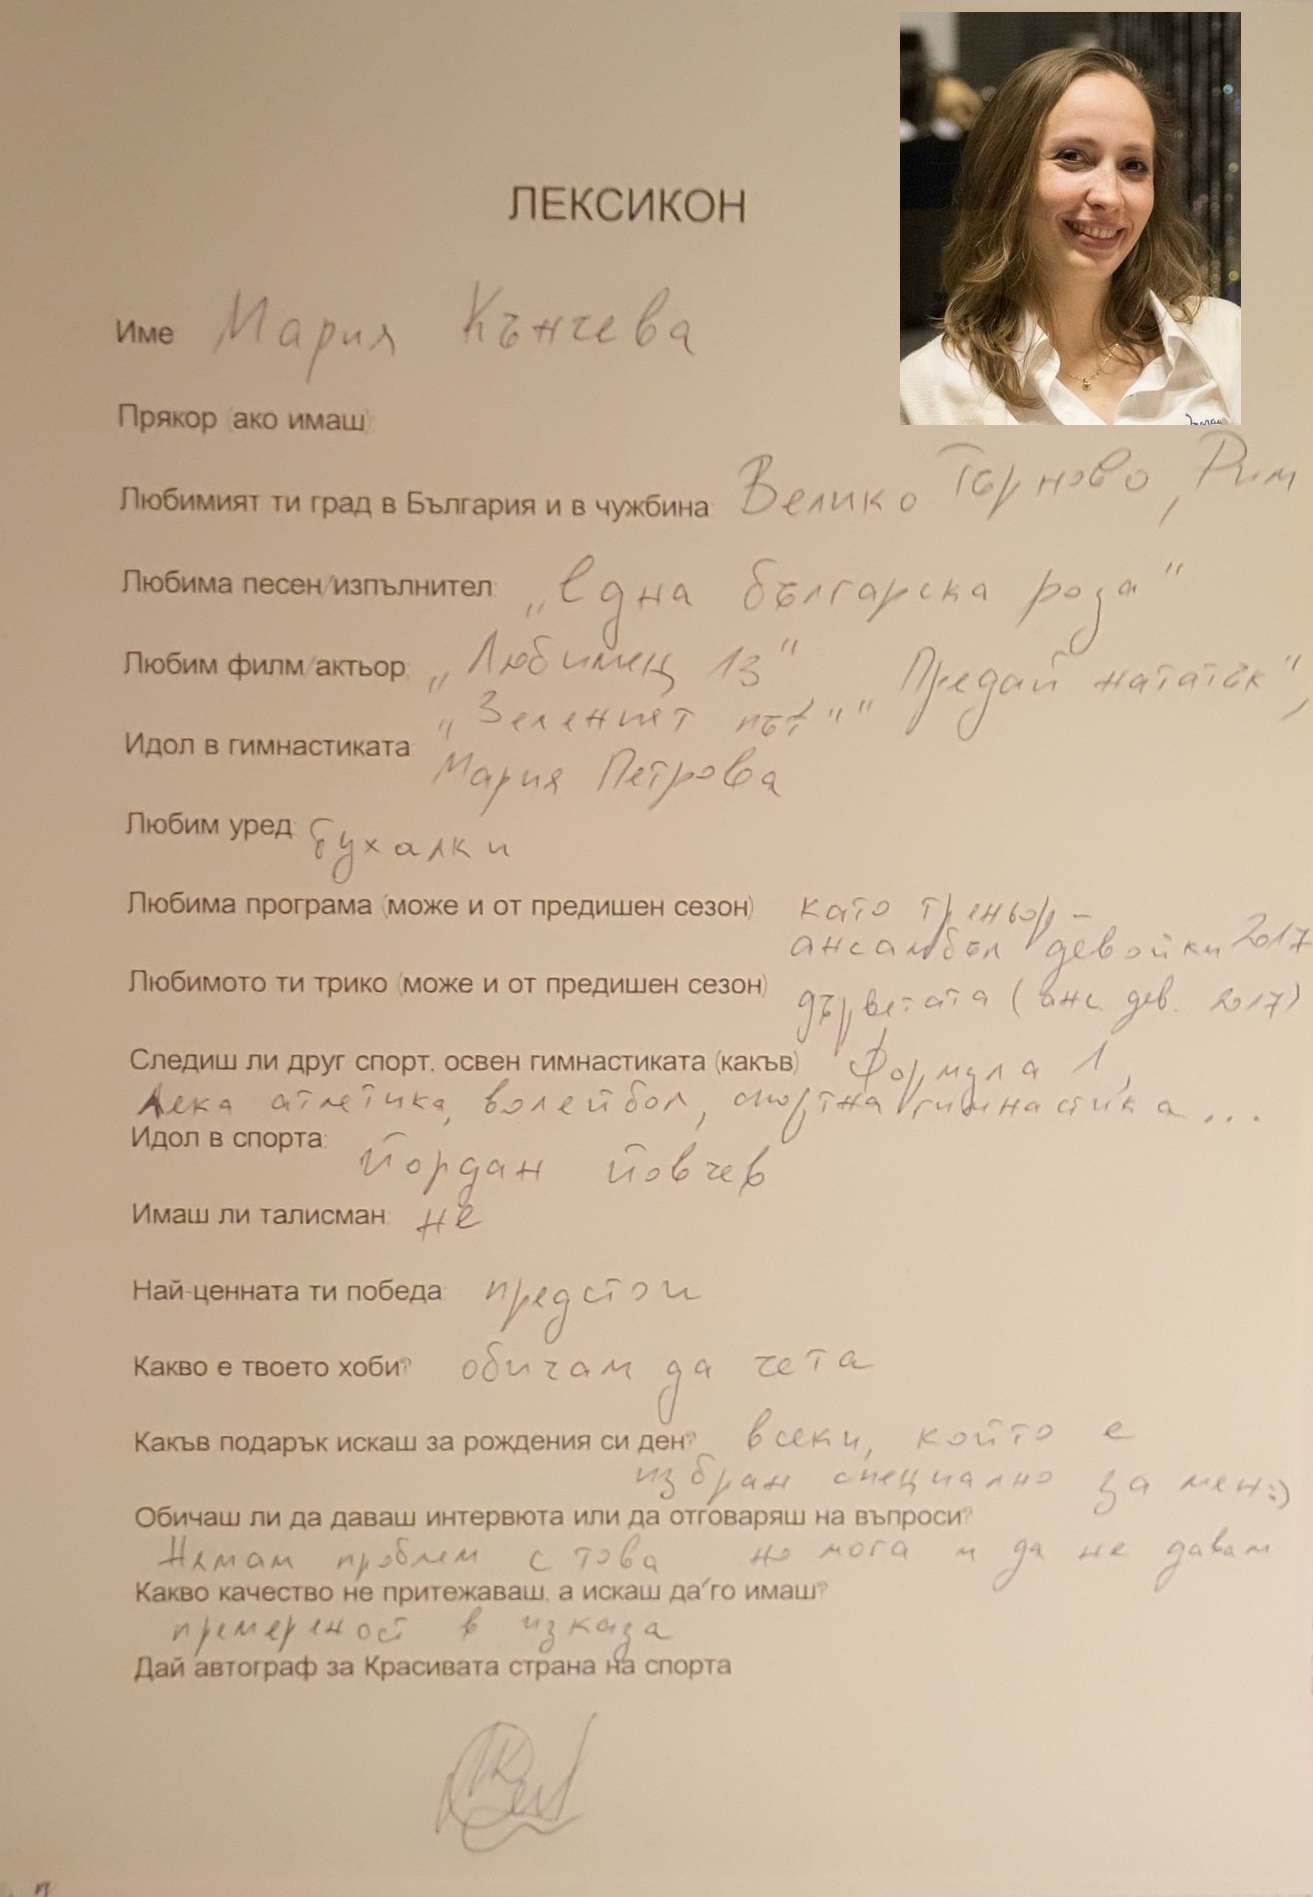 ЛЕКСИКОН
Име Мария Кънчева
Прякор (ако имаш):
Любимият ти град в България и в чужбина: Велико Търново, Рим
Любима песен/изпълнител: „Една българска роза"
Любим филм/актьор: „Любимец 13" „Предай нататък",
„Зеленият път"
Идол в гимнастиката:
Мария Петрова
Любим уред: бухалки
Любима програма (може и от предишен сезон) като треньор -
ансамбъл девойки 2017
Любимото ти трико (може и от предишен сезон) дърветата (анс. дев. 2017)
Следиш ли друг спорт, освен гимнастиката (какъв) Формула 1,
Лека атлетика, волейбол, спортна гимнастика ...
Идол в спорта: Йордан Йовчев
Имаш ли талисман: не
Най-ценната ти победа: предстои
Какво е твоето хоби? обичам да чета
Какъв подарък искаш за рождения си ден? всеки, който е
избран специално за мен:)
Обичаш ли да даваш интервюта или да отговаряш на въпроси?
Нямам проблем с това но мога и да не давам
Какво качество не притежаваш, а искаш да го имаш?
премереност в изказа
Дай автограф за Красивата страна на спорта